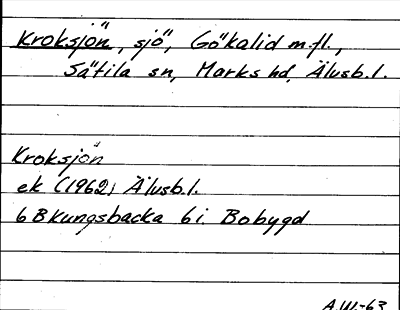 Kroksjön, sjö, Gökalid m.fl.,
Sätila sn, Marks hd, Älvsb.l.
Kroksjön
ek (1962) Älvsb.l.
6 B Kungsbacka 6 i. Bobygd
A.W.-63